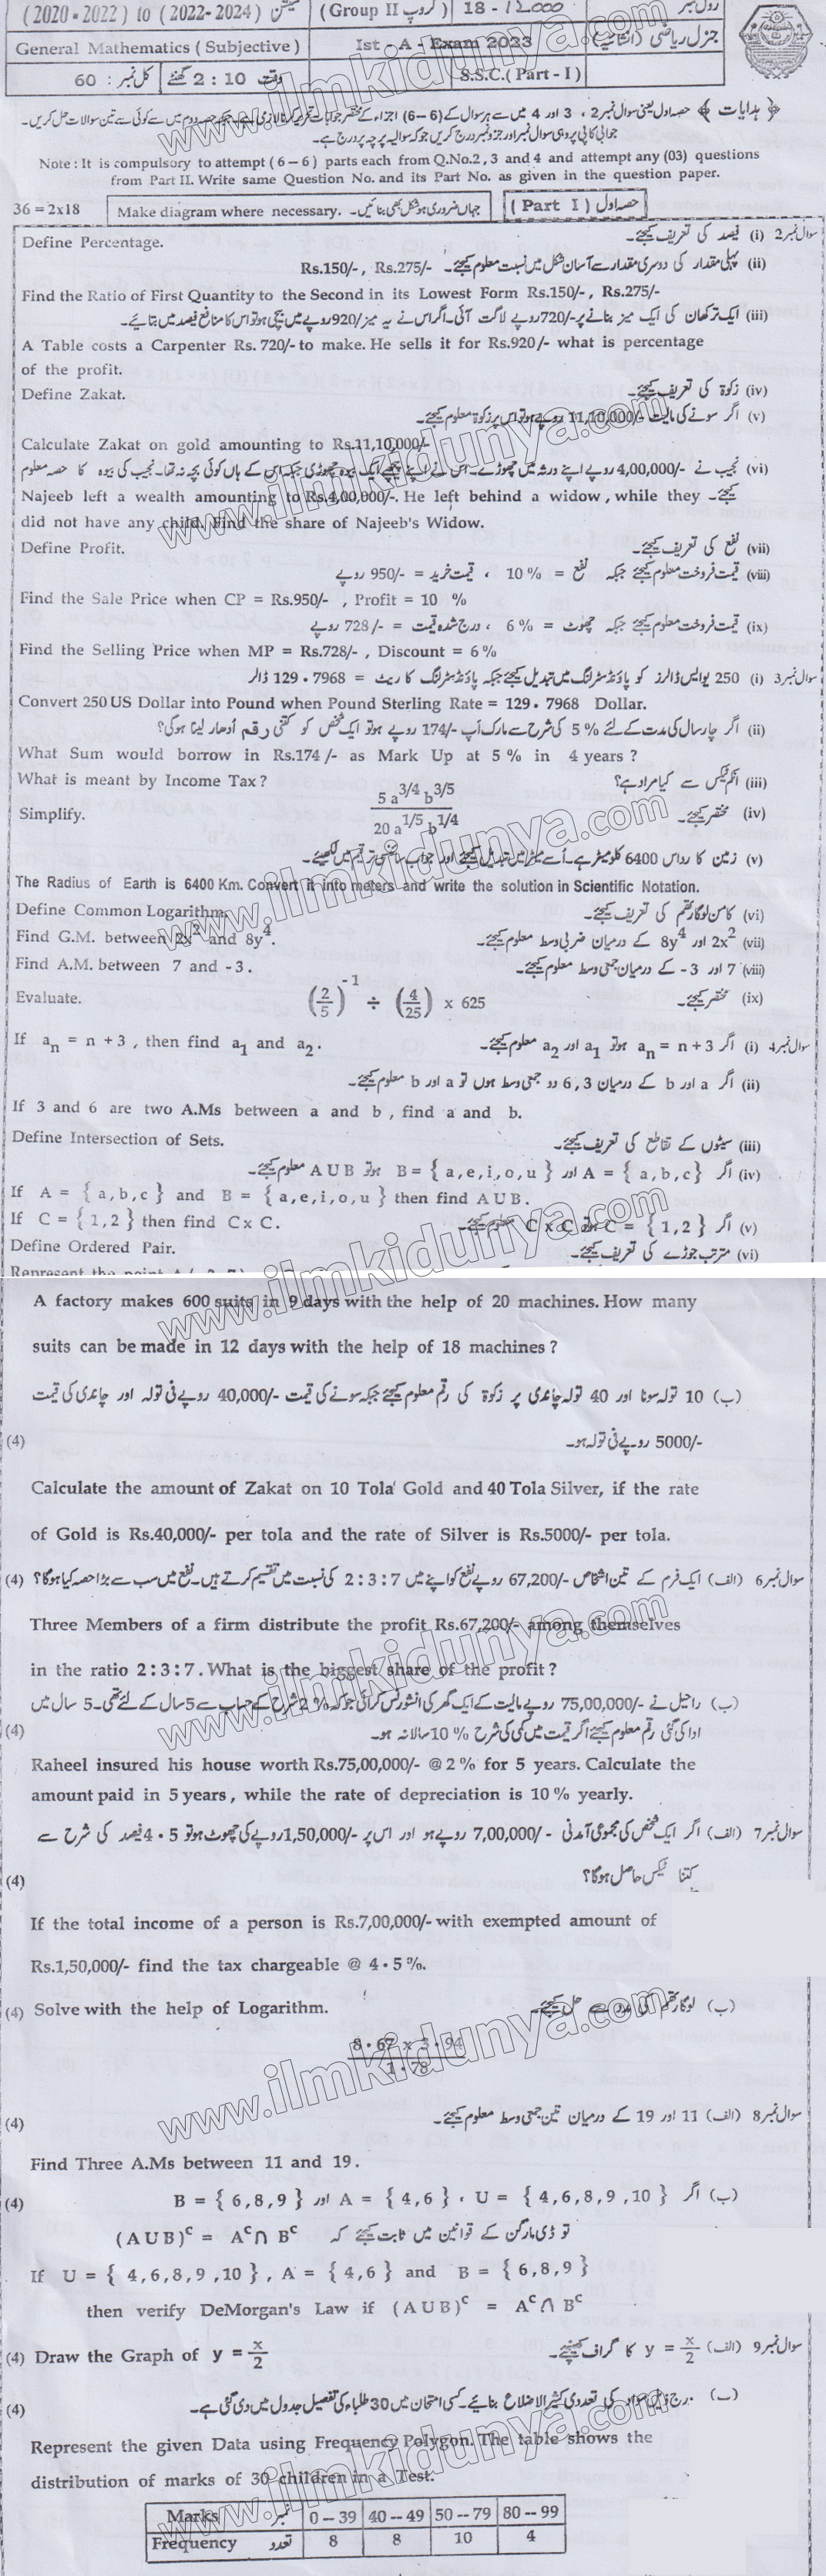 (2020-2022) to (2022-2024) سیشن (Group II گروپ) 18-12000 رول نمبر
General Mathematics (Subjective) Ist-A-Exam 2023 جنرل ریاضی (انشائیہ)
وقت 2:10 گھنٹے کل نمبر: 60 S.S.C.(Part-I)
﴿ ہدایات ﴾ حصہ اول یعنی سوال نمبر 2 ، 3 اور 4 میں سے ہر سوال کے (6-6) اجزاء کے مختصر جوابات تحریر کرنا لازمی ہے۔ جبکہ حصہ دوم میں سے کوئی سے تین سوالات حل کریں۔
جوابی کاپی پر وہی سوال نمبر اور جزو نمبر درج کریں جو کہ سوالیہ پرچہ پر درج ہے۔
Note : It is compulsory to attempt (6-6) parts each from Q.No.2, 3 and 4 and attempt any (03) questions
from Part II. Write same Question No. and its Part No. as given in the question paper.
36 = 2x18 Make diagram where necessary. جہاں ضروری ہو شکل بھی بنائیں۔ (Part I) حصہ اول
Define Percentage. سوال نمبر 2 (i) فیصد کی تعریف کیجئے۔
(ii) پہلی مقدار کی دوسری مقدار سے آسان شکل میں نسبت معلوم کیجئے۔ Rs.150/- , Rs.275/-
Find the Ratio of First Quantity to the Second in its Lowest Form Rs.150/- , Rs.275/-
(iii) ایک ترکھان کی ایک میز بنانے پر -/720 روپے لاگت آئی۔ اگر اس نے یہ میز -/920 روپے میں بیچی ہو تو اس کا منافع فیصد میں بتائیے۔
A Table costs a Carpenter Rs. 720/- to make. He sells it for Rs.920/- what is percentage
of the profit.
Define Zakat. (iv) زکوٰۃ کی تعریف کیجئے۔
(v) اگر سونے کی مالیت -/11,10,000 روپے ہو تو اس پر زکوٰۃ معلوم کیجئے۔
Calculate Zakat on gold amounting to Rs.11,10,000/-
(vi) نجیب نے -/4,00,000 روپے اپنے ورثہ میں چھوڑے۔ اس نے اپنے پیچھے ایک بیوہ چھوڑی جبکہ اس کے ہاں کوئی بچہ نہ تھا۔ نجیب کی بیوہ کا حصہ معلوم
Najeeb left a wealth amounting to Rs.4,00,000/-. He left behind a widow , while they کیجئے۔
did not have any child. Find the share of Najeeb's Widow.
Define Profit. (vii) نفع کی تعریف کیجئے۔
(viii) قیمت فروخت معلوم کیجئے جبکہ نفع = 10 % ، قیمت خرید = -/950 روپے
Find the Sale Price when CP = Rs.950/- , Profit = 10 %
(ix) قیمت فروخت معلوم کیجئے جبکہ چھوٹ = 6 % ، درج شدہ قیمت = -/728 روپے
Find the Selling Price when MP = Rs.728/- , Discount = 6 %
سوال نمبر 3 (i) 250 یو ایس ڈالرز کو پاؤنڈ سٹرلنگ میں تبدیل کیجئے جبکہ پاؤنڈ سٹرلنگ کا ریٹ = 129.7968 ڈالر
Convert 250 US Dollar into Pound when Pound Sterling Rate = 129.7968 Dollar.
(ii) اگر چار سال کی مدت کے لئے 5 % کی شرح سے مارک اَپ -/174 روپے ہو تو ایک شخص کو کتنی رقم اُدھار لینا ہوگی؟
What Sum would borrow in Rs.174 /- as Mark Up at 5 % in 4 years ?
What is meant by Income Tax ? (iii) انکم ٹیکس سے کیا مراد ہے؟
Simplify. 5 a^3/4 b^3/5 / 20 a^1/5 b^1/4 (iv) مختصر کیجئے۔
(v) زمین کا رداس 6400 کلومیٹر ہے۔ اُسے میٹر میں تبدیل کیجئے اور جواب سائنسی ترقیم میں لکھیئے۔
The Radius of Earth is 6400 Km. Convert it into meters and write the solution in Scientific Notation.
Define Common Logarithm. (vi) کامن لوگارتھم کی تعریف کیجئے۔
Find G.M. between 2x² and 8y⁴. (vii) 2x² اور 8y⁴ کے درمیان ضربی وسط معلوم کیجئے۔
Find A.M. between 7 and -3. (viii) 7 اور -3 کے درمیان جمعی وسط معلوم کیجئے۔
Evaluate. (2/5)⁻¹ ÷ (4/25) x 625 (ix) مختصر کیجئے۔
If aₙ = n + 3 , then find a₁ and a₂. سوال نمبر 4 (i) اگر aₙ = n + 3 ہو تو a₁ اور a₂ معلوم کیجئے۔
(ii) اگر a اور b کے درمیان 6,3 دو جمعی وسط ہوں تو a اور b معلوم کیجئے۔
If 3 and 6 are two A.Ms between a and b , find a and b.
Define Intersection of Sets. (iii) سیٹوں کے تقاطع کی تعریف کیجئے۔
(iv) اگر A = { a,b,c } اور B = { a,e,i,o,u } ہو تو AUB معلوم کیجئے۔
If A = { a,b,c } and B = { a,e,i,o,u } then find AUB.
If C = { 1,2 } then find C x C. (v) اگر C = { 1,2 } ہو تو C x C معلوم کیجئے۔
Define Ordered Pair. (vi) مترتب جوڑے کی تعریف کیجئے۔
A factory makes 600 suits in 9 days with the help of 20 machines. How many
suits can be made in 12 days with the help of 18 machines ?
(ب) 10 تولہ سونا اور 40 تولہ چاندی پر زکوٰۃ کی رقم معلوم کیجئے جبکہ سونے کی قیمت -/40,000 روپے فی تولہ اور چاندی کی قیمت
(4) 5000/- روپے فی تولہ ہو۔
Calculate the amount of Zakat on 10 Tola Gold and 40 Tola Silver, if the rate
of Gold is Rs.40,000/- per tola and the rate of Silver is Rs.5000/- per tola.
سوال نمبر 6 (الف) ایک فرم کے تین اشخاص -/67,200 روپے نفع کو اپنے میں 2 : 3 : 7 کی نسبت میں تقسیم کرتے ہیں۔ نفع میں سب سے بڑا حصہ کیا ہوگا؟ (4)
Three Members of a firm distribute the profit Rs.67,200/- among themselves
in the ratio 2 : 3 : 7 . What is the biggest share of the profit ?
(ب) راحیل نے -/75,00,000 روپے مالیت کے ایک گھر کی انشورنس کرائی جو کہ 2 % شرح کے حساب سے 5 سال کے لئے تھی۔ 5 سال میں
(4) ادا کی گئی رقم معلوم کیجئے اگر قیمت میں کمی کی شرح 10 % سالانہ ہو۔
Raheel insured his house worth Rs.75,00,000/- @ 2 % for 5 years. Calculate the
amount paid in 5 years , while the rate of depreciation is 10 % yearly.
سوال نمبر 7 (الف) اگر ایک شخص کی مجموعی آمدنی -/7,00,000 روپے ہو اور اس پر -/1,50,000 روپے کی چھوٹ ہو تو 4.5 فیصد کی شرح سے
(4) کتنا ٹیکس حاصل ہوگا؟
If the total income of a person is Rs.7,00,000/- with exempted amount of
Rs.1,50,000/- find the tax chargeable @ 4.5 %.
(4) Solve with the help of Logarithm. (ب) لوگارتھم کی مدد سے حل کیجئے۔
8.67 x 3.94 / 1.78
(4) سوال نمبر 8 (الف) 11 اور 19 کے درمیان تین جمعی وسط معلوم کیجئے۔
Find Three A.Ms between 11 and 19.
(4) (ب) اگر U = { 4,6,8,9,10 } ، A = { 4,6 } اور B = { 6,8,9 }
تو ڈی مارگن کے قوانین میں ثابت کیجئے کہ (AUB)ᶜ = Aᶜ∩Bᶜ
If U = { 4,6,8,9,10 } , A = { 4,6 } and B = { 6,8,9 }
then verify DeMorgan's Law if (AUB)ᶜ = Aᶜ∩Bᶜ
(4) Draw the Graph of y = x/2 سوال نمبر 9 (الف) y = x/2 کا گراف کھینچئے۔
(4) (ب) درج ذیل مواد کی تعددی کثیر الاضلاع بنائیے۔ کسی امتحان میں 30 طلباء کی تفصیل جدول میں دی گئی ہے۔
Represent the given Data using Frequency Polygon. The table shows the
distribution of marks of 30 children in a Test.
Marks نمبر 0--39 40--49 50--79 80--99
Frequency تعدد 8 8 10 4
www.ilmkidunya.com